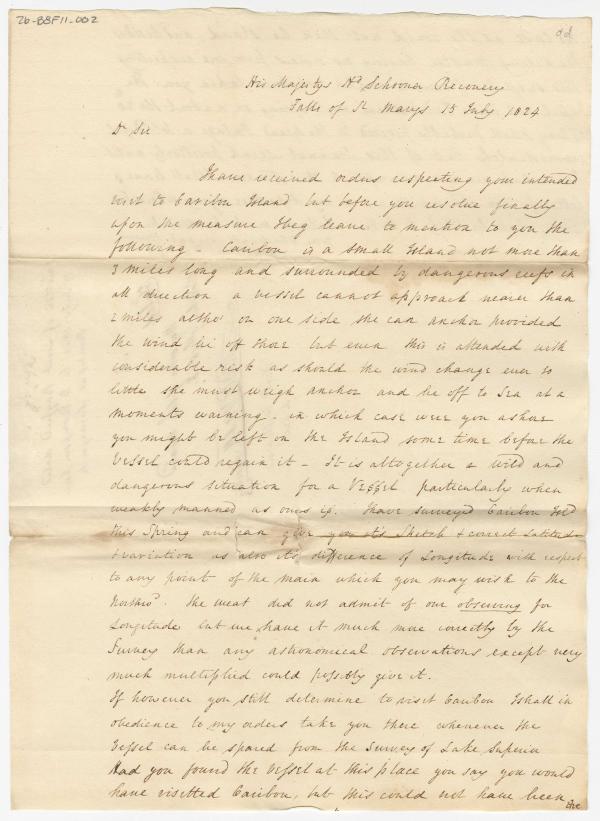 26-B8F11-002
dd
His Majestys Hd Schooner Recovery
Falls of St Marys 15 July 1824
Dr Sir
I have received orders respecting your intended
visit to Caribou Island but before you resolve finally
upon the measure I beg leave to mention to you the
following - Caribou is a small Island not more than
3 miles long and surrounded by dangerous reefs in
all direction a vessel cannot approach nearer than
2 miles altho' on one side she can anchor provided
the wind be off shore but even this is attended with
considerable risk as should the wind change ever so
little she must weigh anchor and be off to Sea at a
moments warning - in which case were you ashore
you might be left on the Island some time before the
Vessel could regain it - It is altogether a wild and
dangerous situation for a Vessel particularly when
weakly manned as ours is. I have surveyed Caribou Isld
this Spring and can give you it's Sketch & correct Latitude
& variation as also it's difference of Longitude with respect
to any point of the main which you may wish to the
Northwd. The weat did not admit of our observing for
Longitude but we have it much more correctly by the
Survey than any astronomical observations except very
much multiplied could possibly give it.
If however you still determine to visit Caribou I shall in
obedience to my orders take you there whenever the
Vessel can be spared from the Survey of Lake Superior
Had you found the Vessel at this place you say you would
have visitted Caribou, but this could not have been